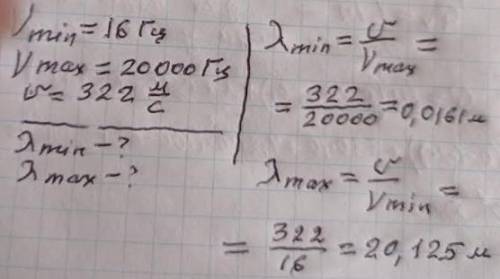 ν min = 16 Гц
ν max = 20000 Гц
υ = 322 м/с
λ min - ?
λ max - ?
λ min = υ/ν max =
= 322/20000 = 0,0161 м
λ max = υ/ν min =
= 322/16 = 20,125 м